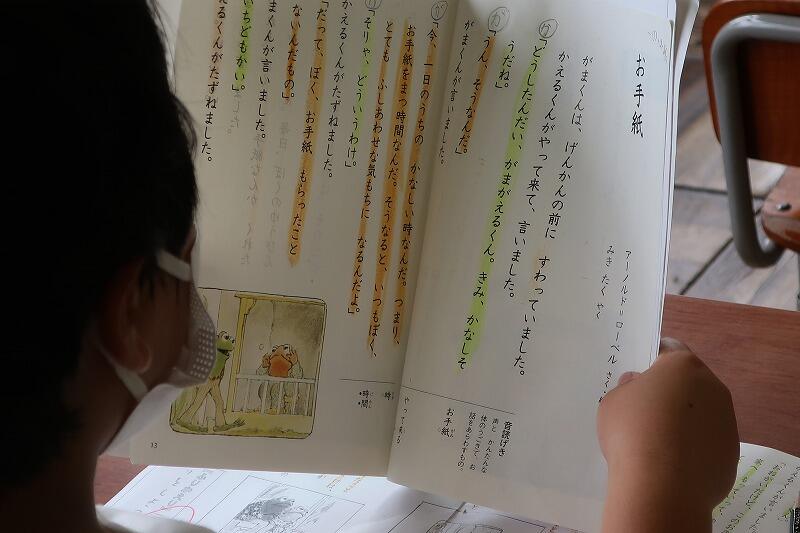 お手紙
アーノルド＝ローベル さく
みき たく やく
がまくんは、げんかんの前に すわっていました。
かえるくんがやって来て、言いました。
か
「どうしたんだい、がまがえるくん。きみ、かなしそ
うだね。」
が
「うん、そうなんだ。」
がまくんが言いました。
が
「今、一日のうちの かなしい時なんだ。つまり、
お手紙をまつ時間なんだ。そうなると、いつもぼく、
とても ふしあわせな気もちに なるんだよ。」
か
「そりゃ、どういうわけ。」
かえるくんがたずねました。
「だって、ぼく、お手紙 もらったこと
ないんだもの。」
がまくんが言いました。
いちどもかい。」
えるくんがたずねました。
音読げき
声と かんたんな
体のうごきで、お
話をあらわすもの。
お手紙
時
時間
やって来る
13